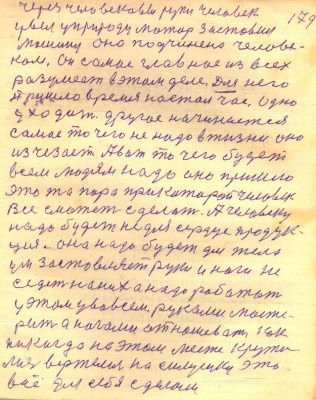 через человековы руки человек 179
умел у природы мотор заставил
машину оно подчинено челове-
ком. Он самое главное из всех
разумеет в этом деле. Для него
пришло время настал час. одно
уходит. другое начинается
самое то чего не надо в жизни оно
изчезает. А вот то чего будет
всем людям надо оно пришло
это та пора при которой человек
все сможет сделать. А человеку
надо будет не для сердце продук-
ция. она надо будет для тела
ум заставляет руки и ноги не
сидят на них а надо работат
у этом у во всем. руками масте-
рит а ногами относиват как
никогда на этом месте кружи-
лись вертелись на силушки это
всё для себя сделали